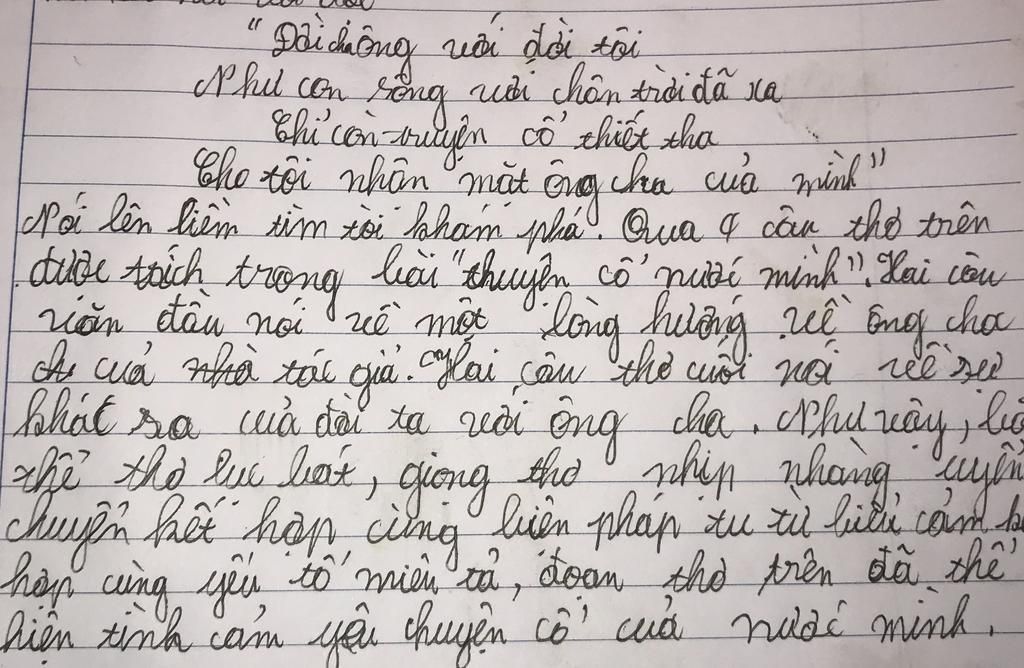 "Đời cha ông với đời tôi
Như con sông với chân trời đã xa
Chỉ còn truyện cổ thiết tha
Cho tôi nhận mặt ông cha của mình"
Nói lên liềm tìm tòi khám phá. Qua 4 câu thơ trên
được trích trong bài "thuyện cổ nước mình". Hai câu
văn đầu nói về một lòng hướng về ông cha
của tác giả. Hai câu thơ cuối nói về sự
khát ra của đời ta với ông cha. Như vậy, bằ
thể thơ lục bát, giọng thơ nhịp nhàng uyển
chuyển kết hợp cùng biện pháp tu từ biểu cảm k
hợp cùng yếu tố miêu tả, đoạn thơ trên đã thể
hiện tình cảm yêu chuyện cổ của nước mình.